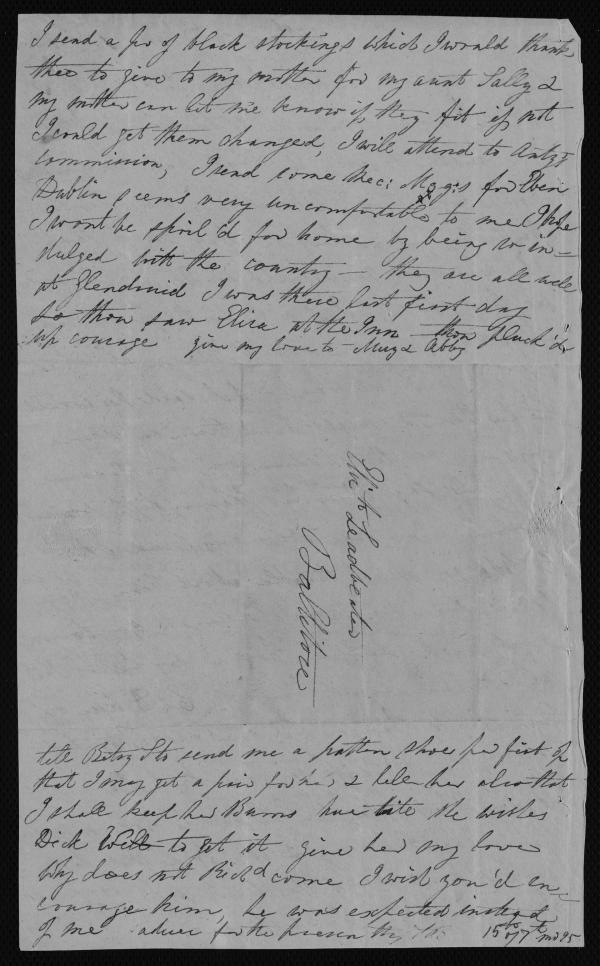 I send a pr of black stockings which I would thank
thee to give to my mother for my aunt Sally &
my mother can let me know if they fit if not
I could get them changed, I will attend to
commission, I send some Mags for Eben
Dublin seems very uncomfortable to me I hope
I wont be spoil'd for home by being so in=
dulged with the country — they are all well
at Glendruid I was there last first day
So thou saw Eliza at the Inn thou pluck'd
up courage give my love to Mary & Abby
Eliz:th Leadbeater
Ballitore
tell Betsy S to send me a patten shoe per first op
that I may get a pair for her & tell her also that
I shall keep her Burns here till she wishes
Dick to get it give her my love
Why does not Rich:d come I wish you'd en=
courage him, he was expected instead
of me adieu for the present 15th of 7th mo 95